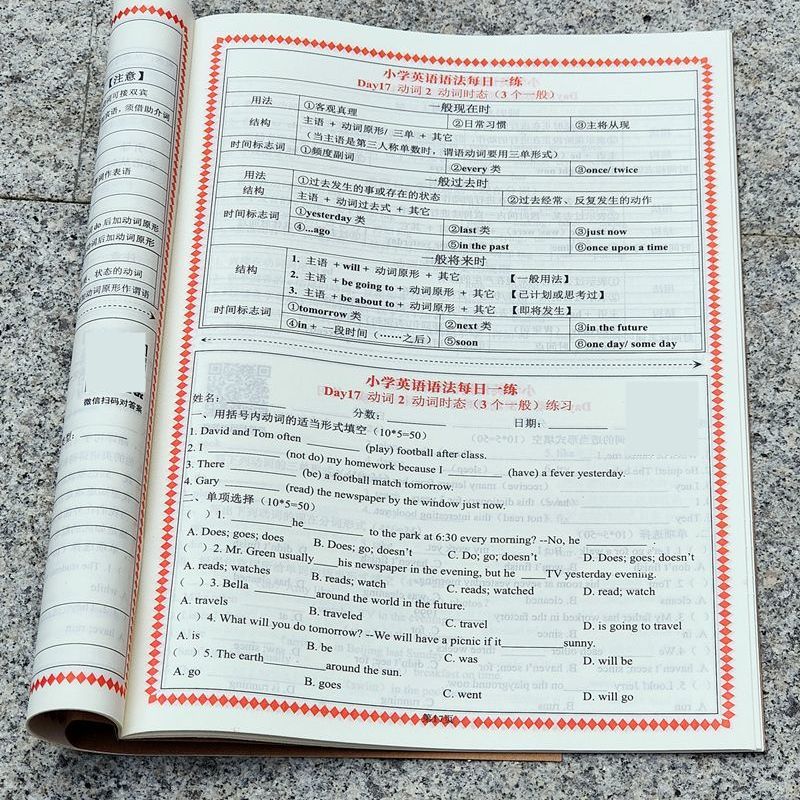 【注意】
间接双宾
宾语，须借助介词
词作表语
do 后加动词原形
动词后加动词原形
、状态的动词
动词原形作谓语
微信扫码对答案
型：
小学英语语法每日一练
Day17 动词 2 动词时态（3 个一般）
一般现在时
用法 ①客观真理 ②日常习惯 ③主将从现
结构 主语 + 动词原形/ 三单 + 其它
（当主语是第三人称单数时，谓语动词要用三单形式）
时间标志词 ①频度副词 ②every 类 ③once/ twice
一般过去时
用法 ①过去发生的事或存在的状态 ②过去经常、反复发生的动作
结构 主语 + 动词过去式 + 其它
时间标志词 ①yesterday 类 ②last 类 ③just now
④...ago ⑤in the past ⑥once upon a time
一般将来时
结构 1. 主语 + will + 动词原形 + 其它 【一般用法】
2. 主语 + be going to + 动词原形 + 其它 【已计划或思考过】
3. 主语 + be about to + 动词原形 + 其它 【即将发生】
时间标志词 ①tomorrow 类 ②next 类 ③in the future
④in + 一段时间（……之后） ⑤soon ⑥one day/ some day
小学英语语法每日一练
Day17 动词 2 动词时态（3 个一般）练习
姓名：________ 分数：________ 日期：________
一、用括号内动词的适当形式填空（10*5=50）
1. David and Tom often ________ (play) football after class.
2. I ________ (not do) my homework because I ________ (have) a fever yesterday.
3. There ________ (be) a football match tomorrow.
4. Gary ________ (read) the newspaper by the window just now.
二、单项选择（10*5=50）
（ ）1. ________ he ________ to the park at 6:30 every morning? --No, he ________.
A. Does; goes; does B. Does; go; doesn't C. Do; go; doesn't D. Does; goes; doesn't
（ ）2. Mr. Green usually ____ his newspaper in the evening, but he ____ TV yesterday evening.
A. reads; watches B. reads; watch C. reads; watched D. read; watch
（ ）3. Bella ________ around the world in the future.
A. travels B. traveled C. travel D. is going to travel
（ ）4. What will you do tomorrow? --We will have a picnic if it ________ sunny.
A. is B. be C. was D. will be
（ ）5. The earth ________ around the sun.
A. go B. goes C. went D. will go
第17页